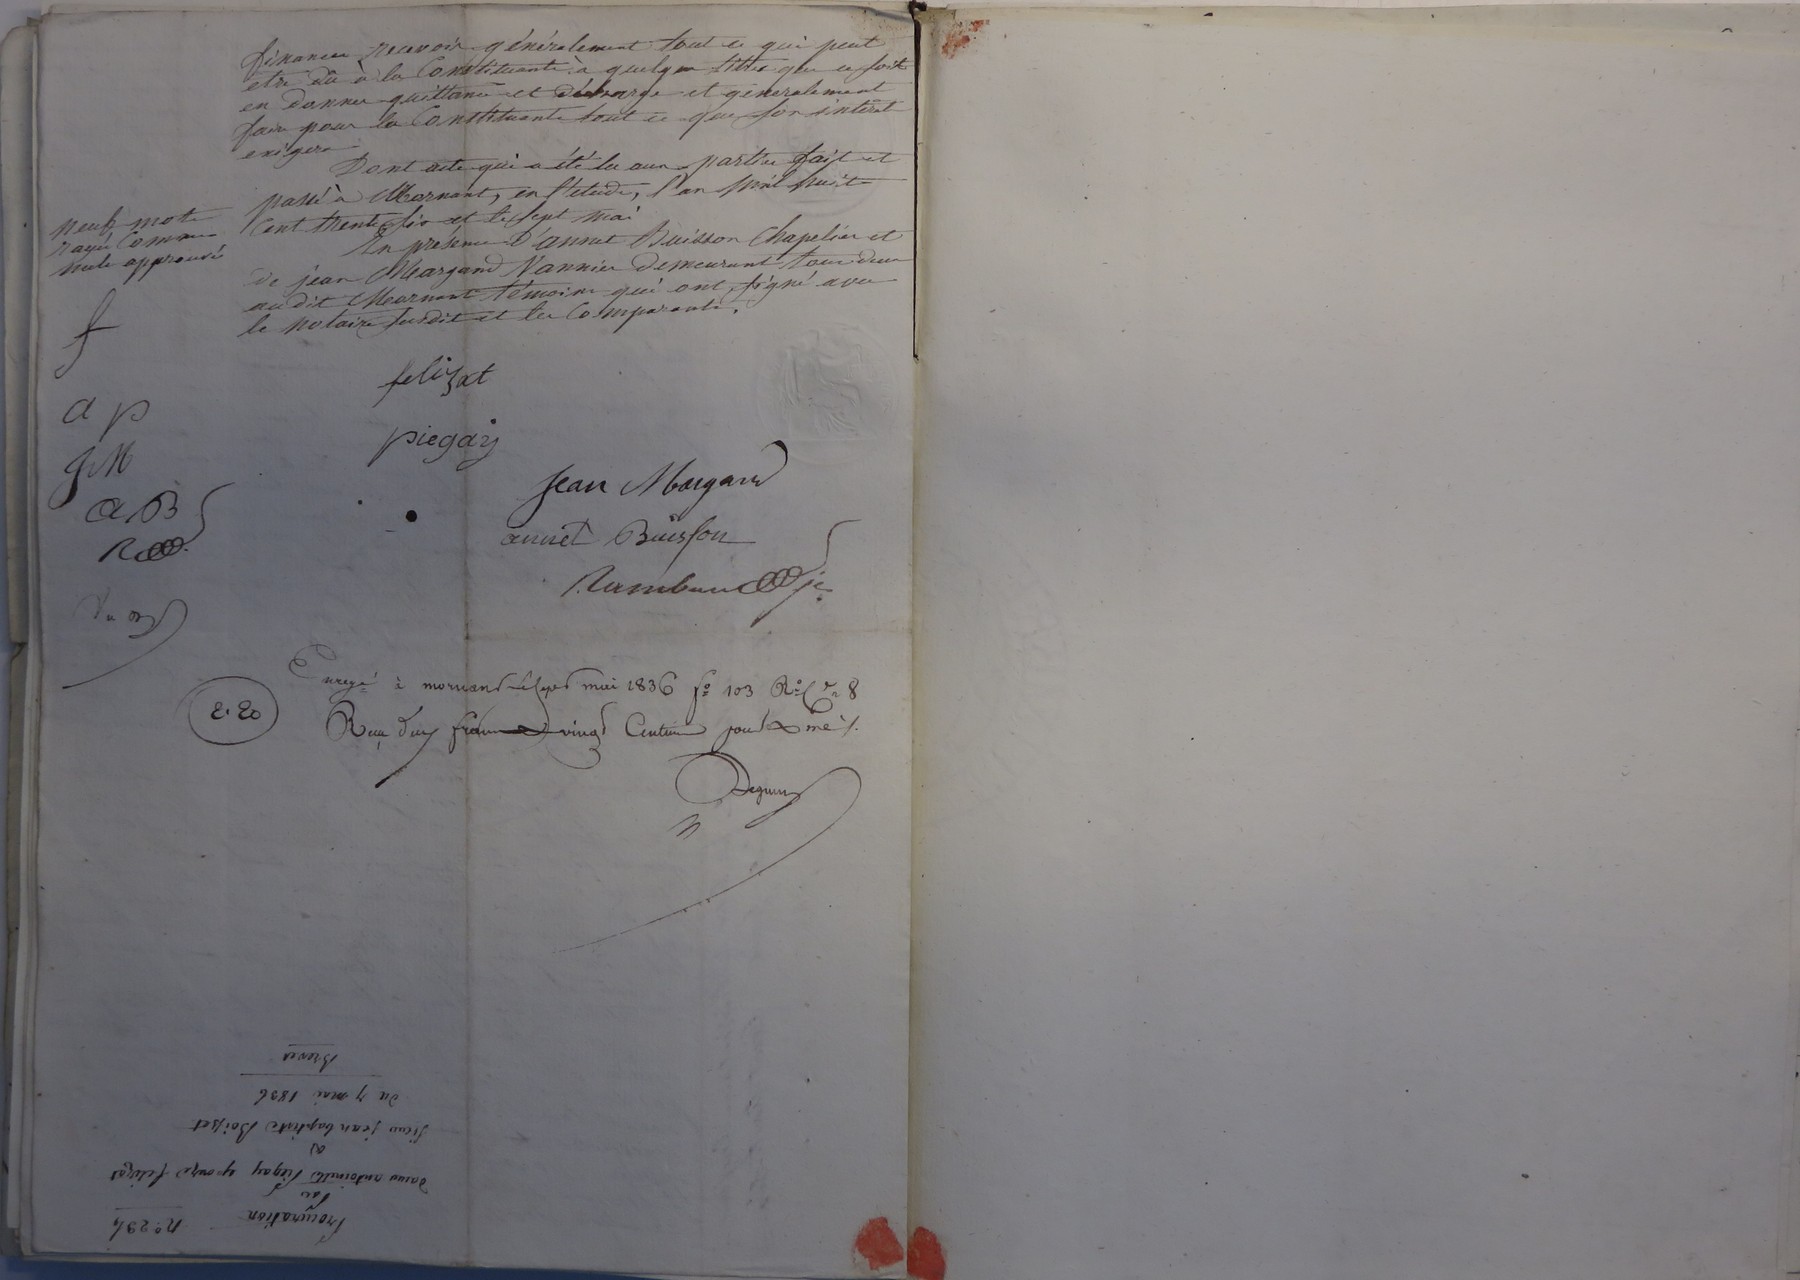 finances, recevoir généralement tout ce qui peut
etre dû à la Constituante à quelque titre que ce soit
en donner quittance et décharge et généralement
faire pour la Constituante tout ce que son intérêt
exigera
Dont acte qui a été lu aux parties fait et
passé à Mornant, en l'étude, l'an mil huit
Cent trente six et le sept mai
En présence d'annet Buisson Chapelier et
de jean Margand Vannier demeurant tous deux
audit Mornant témoins qui ont signé avec
le notaire susdit et les Comparants.
neuf mots
rayés Comme
nuls approuvés
f
a p
J M
a B
R
felizat
piegay
jean Margand
annet Buisson
Rambaud
Enregé à mornant le sept mai 1836 fo 103 Ro Cse 8
Reçu deux francs vingt Centimes pour Xme
2.20
No 234
Procuration
Par
dame antoinette Piegay épouse felizat
à
sieur jean baptiste Boisset
du 7 mai 1836
Brevet